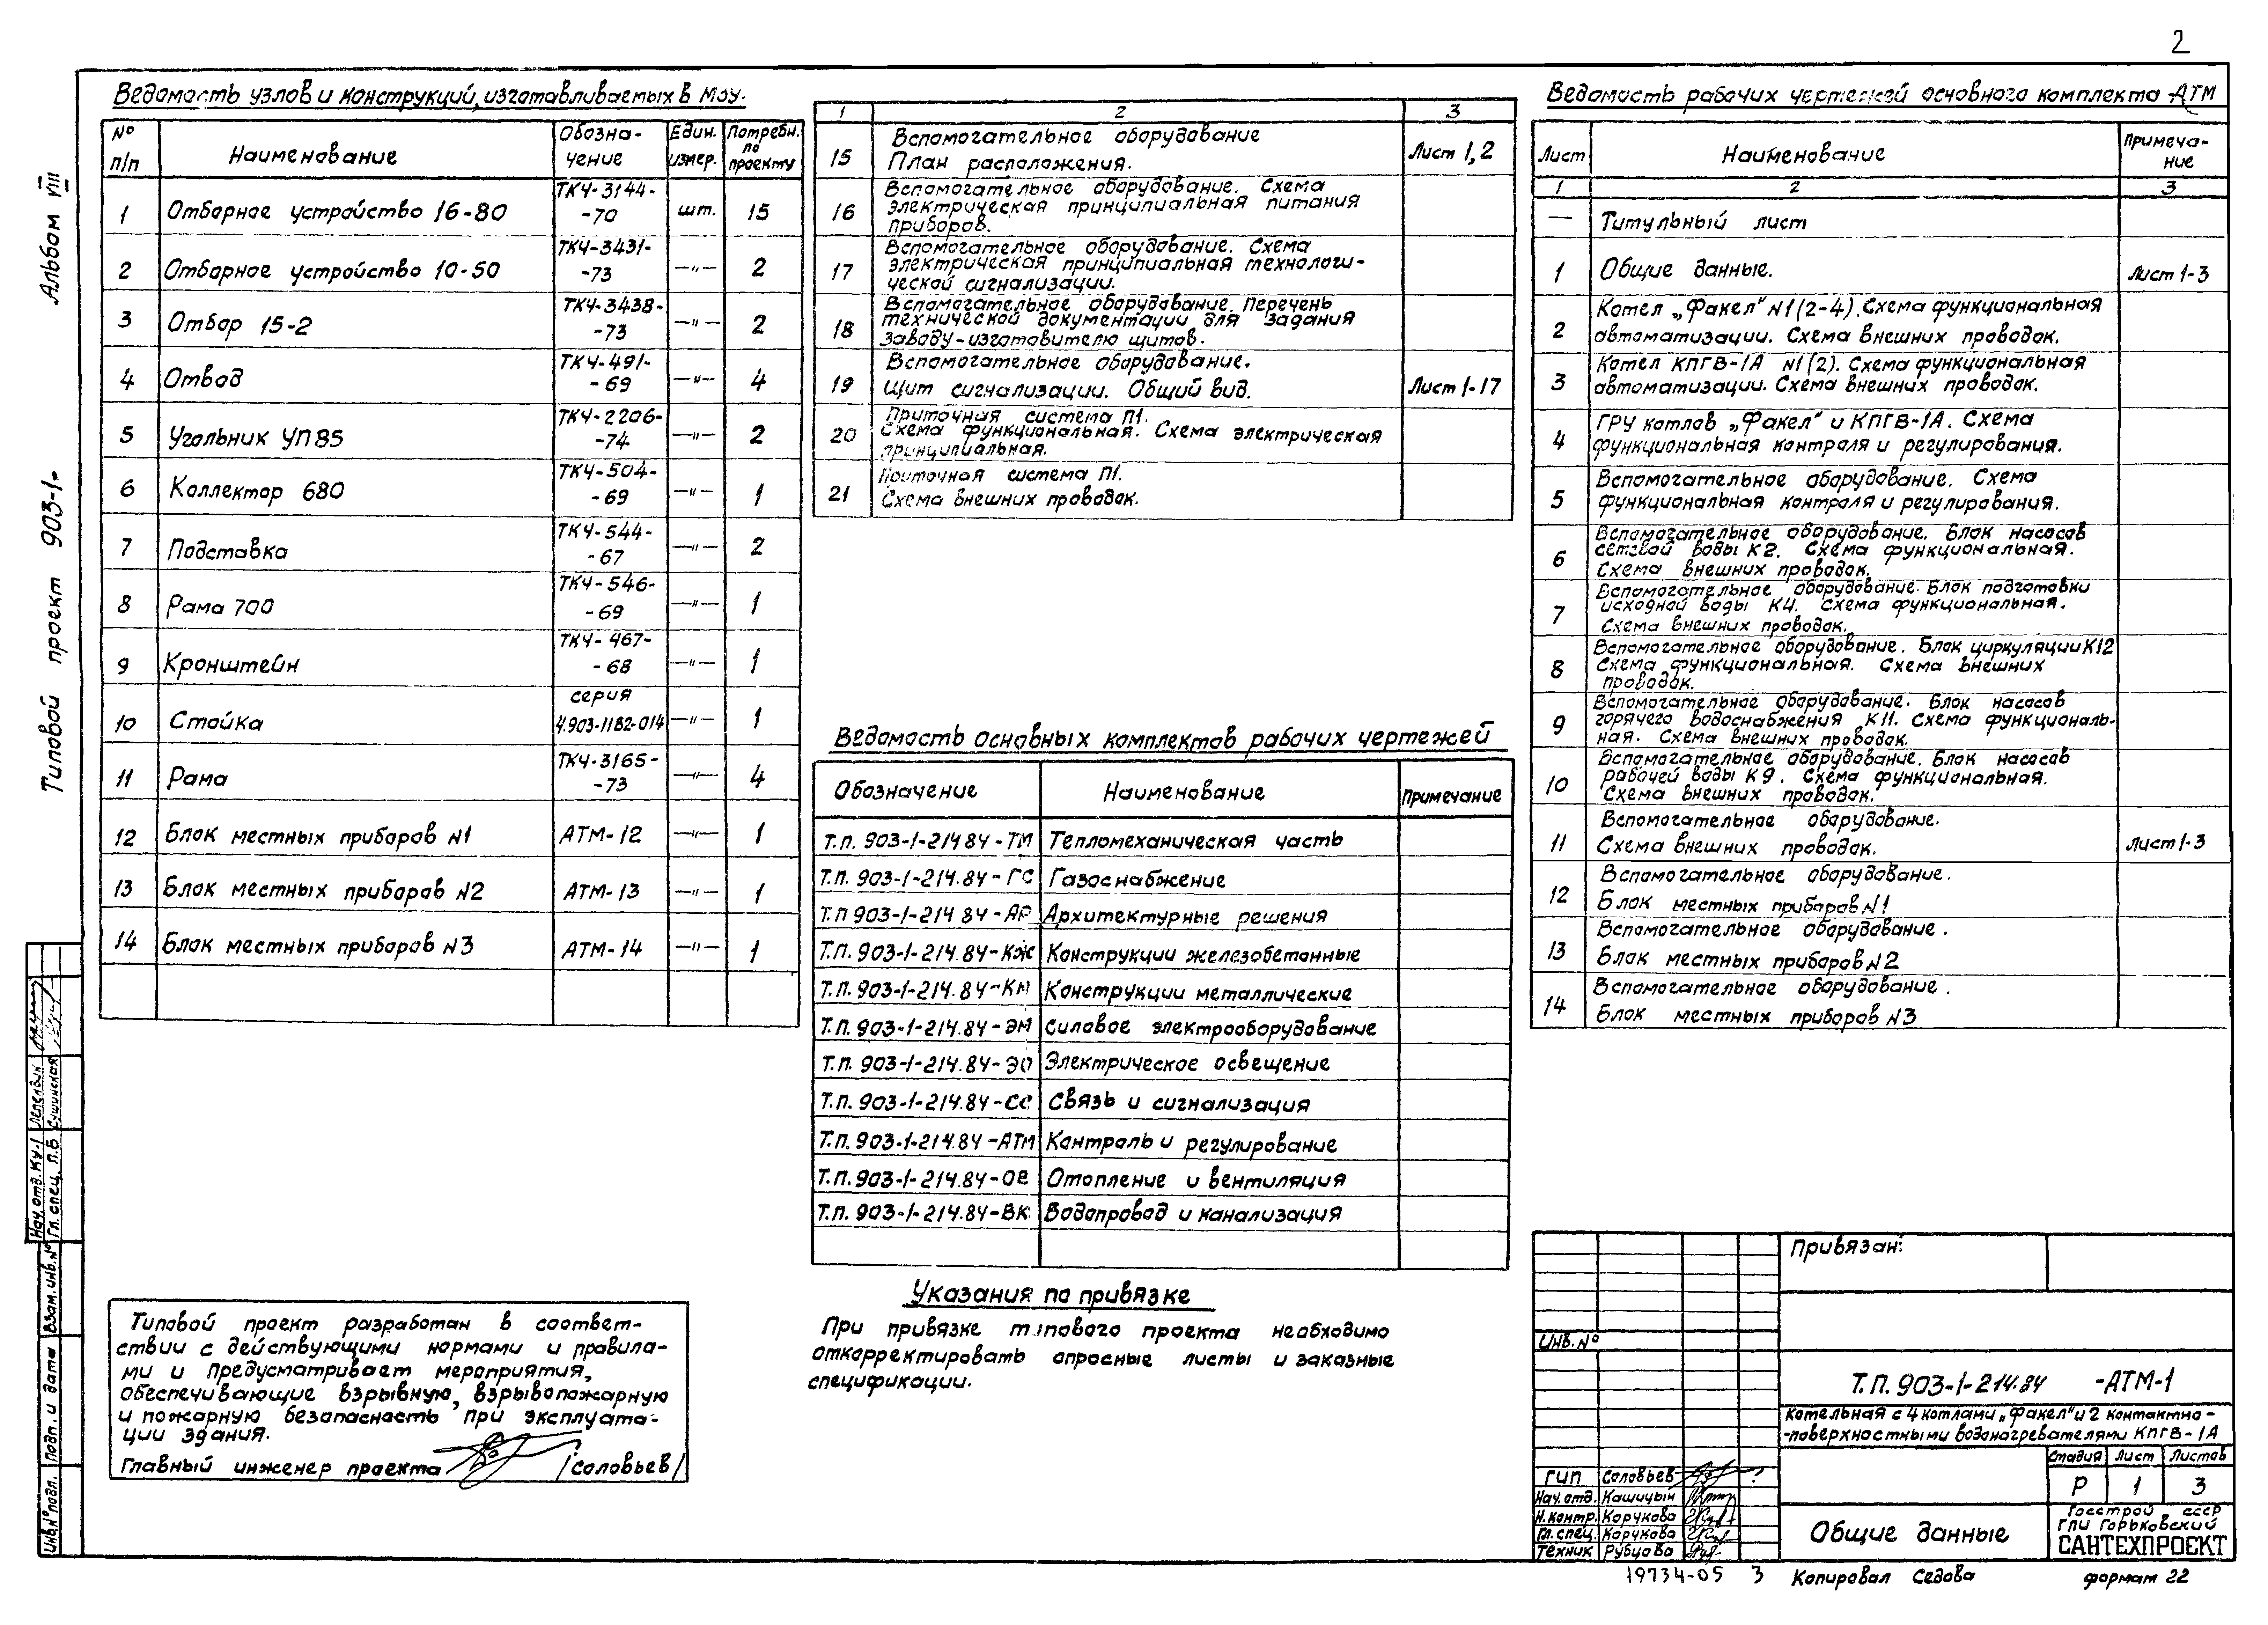 2
Альбом VIII
Типовой проект 903-1-
Ведомость узлов и конструкций, изготавливаемых в МЗУ.
№ п/п | Наименование | Обозна-чение | Един. измер. | Потребн. по проекту
1 | Отборное устройство 16-80 | ТК4-3144--70 | шт. | 15
2 | Отборное устройство 10-50 | ТК4-3431--73 | —"— | 2
3 | Отбор 15-2 | ТК4-3438--73 | —"— | 2
4 | Отвод | ТК4-491--69 | —"— | 4
5 | Угольник УП85 | ТК4-2206--74 | —"— | 2
6 | Коллектор 680 | ТК4-504--69 | —"— | 1
7 | Подставка | ТК4-544--67 | —"— | 2
8 | Рама 700 | ТК4-546--69 | —"— | 1
9 | Кронштейн | ТК4-467--68 | —"— | 1
10 | Стойка | серия 4.903-11В2-014 | —"— | 1
11 | Рама | ТК4-3165--73 | —"— | 4
12 | Блок местных приборов №1 | АТМ-12 | —"— | 1
13 | Блок местных приборов №2 | АТМ-13 | —"— | 1
14 | Блок местных приборов №3 | АТМ-14 | —"— | 1
Типовой проект разработан в соответ-
ствии с действующими нормами и правила-
ми и предусматривает мероприятия,
обеспечивающие взрывную, взрывопожарную
и пожарную безопасность при эксплуата-
ции здания.
Главный инженер проекта /Соловьев/
1 | 2 | 3
15 | Вспомогательное оборудование
План расположения. | Лист 1,2
16 | Вспомогательное оборудование. Схема
электрическая принципиальная питания
приборов.
17 | Вспомогательное оборудование. Схема
электрическая принципиальная технологи-
ческой сигнализации.
18 | Вспомогательное оборудование. Перечень
технической документации для задания
заводу-изготовителю щитов.
19 | Вспомогательное оборудование.
Щит сигнализации. Общий вид. | Лист 1-17
20 | Приточная система П1.
Схема функциональная. Схема электрическая
принципиальная.
21 | Приточная система П1.
Схема внешних проводок.
Ведомость основных комплектов рабочих чертежей
Обозначение | Наименование | Примечание
Т.П. 903-1-214 84-ТМ | Тепломеханическая часть
Т.П. 903-1-214.84-ГС | Газоснабжение
Т.П 903-1-214 84-АР | Архитектурные решения
Т.П. 903-1-214.84-КЖ | Конструкции железобетонные
Т.П. 903-1-214.84-КМ | Конструкции металлические
Т.П. 903-1-214.84-ЭМ | Силовое электрооборудование
Т.П. 903-1-214.84-ЭО | Электрическое освещение
Т.П. 903-1-214.84-СС | Связь и сигнализация
Т.П. 903-1-214.84-АТМ | Контроль и регулирование
Т.П. 903-1-214.84-ОВ | Отопление и вентиляция
Т.П. 903-1-214.84-ВК | Водопровод и канализация
Указания по привязке
При привязке типового проекта необходимо
откорректировать опросные листы и заказные
спецификации.
Ведомость рабочих чертежей основного комплекта АТМ
Лист | Наименование | Примеча-ние
1 | 2 | 3
— | Титульный лист
1 | Общие данные. | Лист 1-3
2 | Котел „Факел" №1(2-4). Схема функциональная
автоматизации. Схема внешних проводок.
3 | Котел КПГВ-1А №1(2). Схема функциональная
автоматизации. Схема внешних проводок.
4 | ГРУ котлов „Факел" и КПГВ-1А. Схема
функциональная контроля и регулирования.
5 | Вспомогательное оборудование. Схема
функциональная контроля и регулирования.
6 | Вспомогательное оборудование. Блок насосов
сетевой воды К2. Схема функциональная.
Схема внешних проводок.
7 | Вспомогательное оборудование. Блок подготовки
исходной воды К4. Схема функциональная.
Схема внешних проводок.
8 | Вспомогательное оборудование. Блок циркуляции К12
Схема функциональная. Схема внешних
проводок.
9 | Вспомогательное оборудование. Блок насосов
горячего водоснабжения К11. Схема функциональ-
ная. Схема внешних проводок.
10 | Вспомогательное оборудование. Блок насосов
рабочей воды К9. Схема функциональная.
Схема внешних проводок.
11 | Вспомогательное оборудование.
Схема внешних проводок. | Лист 1-3
12 | Вспомогательное оборудование.
Блок местных приборов №1
13 | Вспомогательное оборудование.
Блок местных приборов №2
14 | Вспомогательное оборудование.
Блок местных приборов №3
Привязан:
Инв. №
Т.П. 903-1-214.84 -АТМ-1
Котельная с 4 котлами „Факел" и 2 контактно-
-поверхностными водонагревателями КПГВ-1А
Стадия | Лист | Листов
Р | 1 | 3
ГИП Соловьев
Нач. отд. Кашицын
Н. контр. Корчкова
Гл. спец. Корчкова
Техник Рубцова
Общие данные
Госстрой СССР
ГПИ Горьковский
САНТЕХПРОЕКТ
19734-05 3
Копировал Седова
формат 22
Нач. отд. КУ-1 Лепендин
Гл. спец. П.Б Сушинская
Взам. инв. №
Подп. и дата
Инв. № подл.